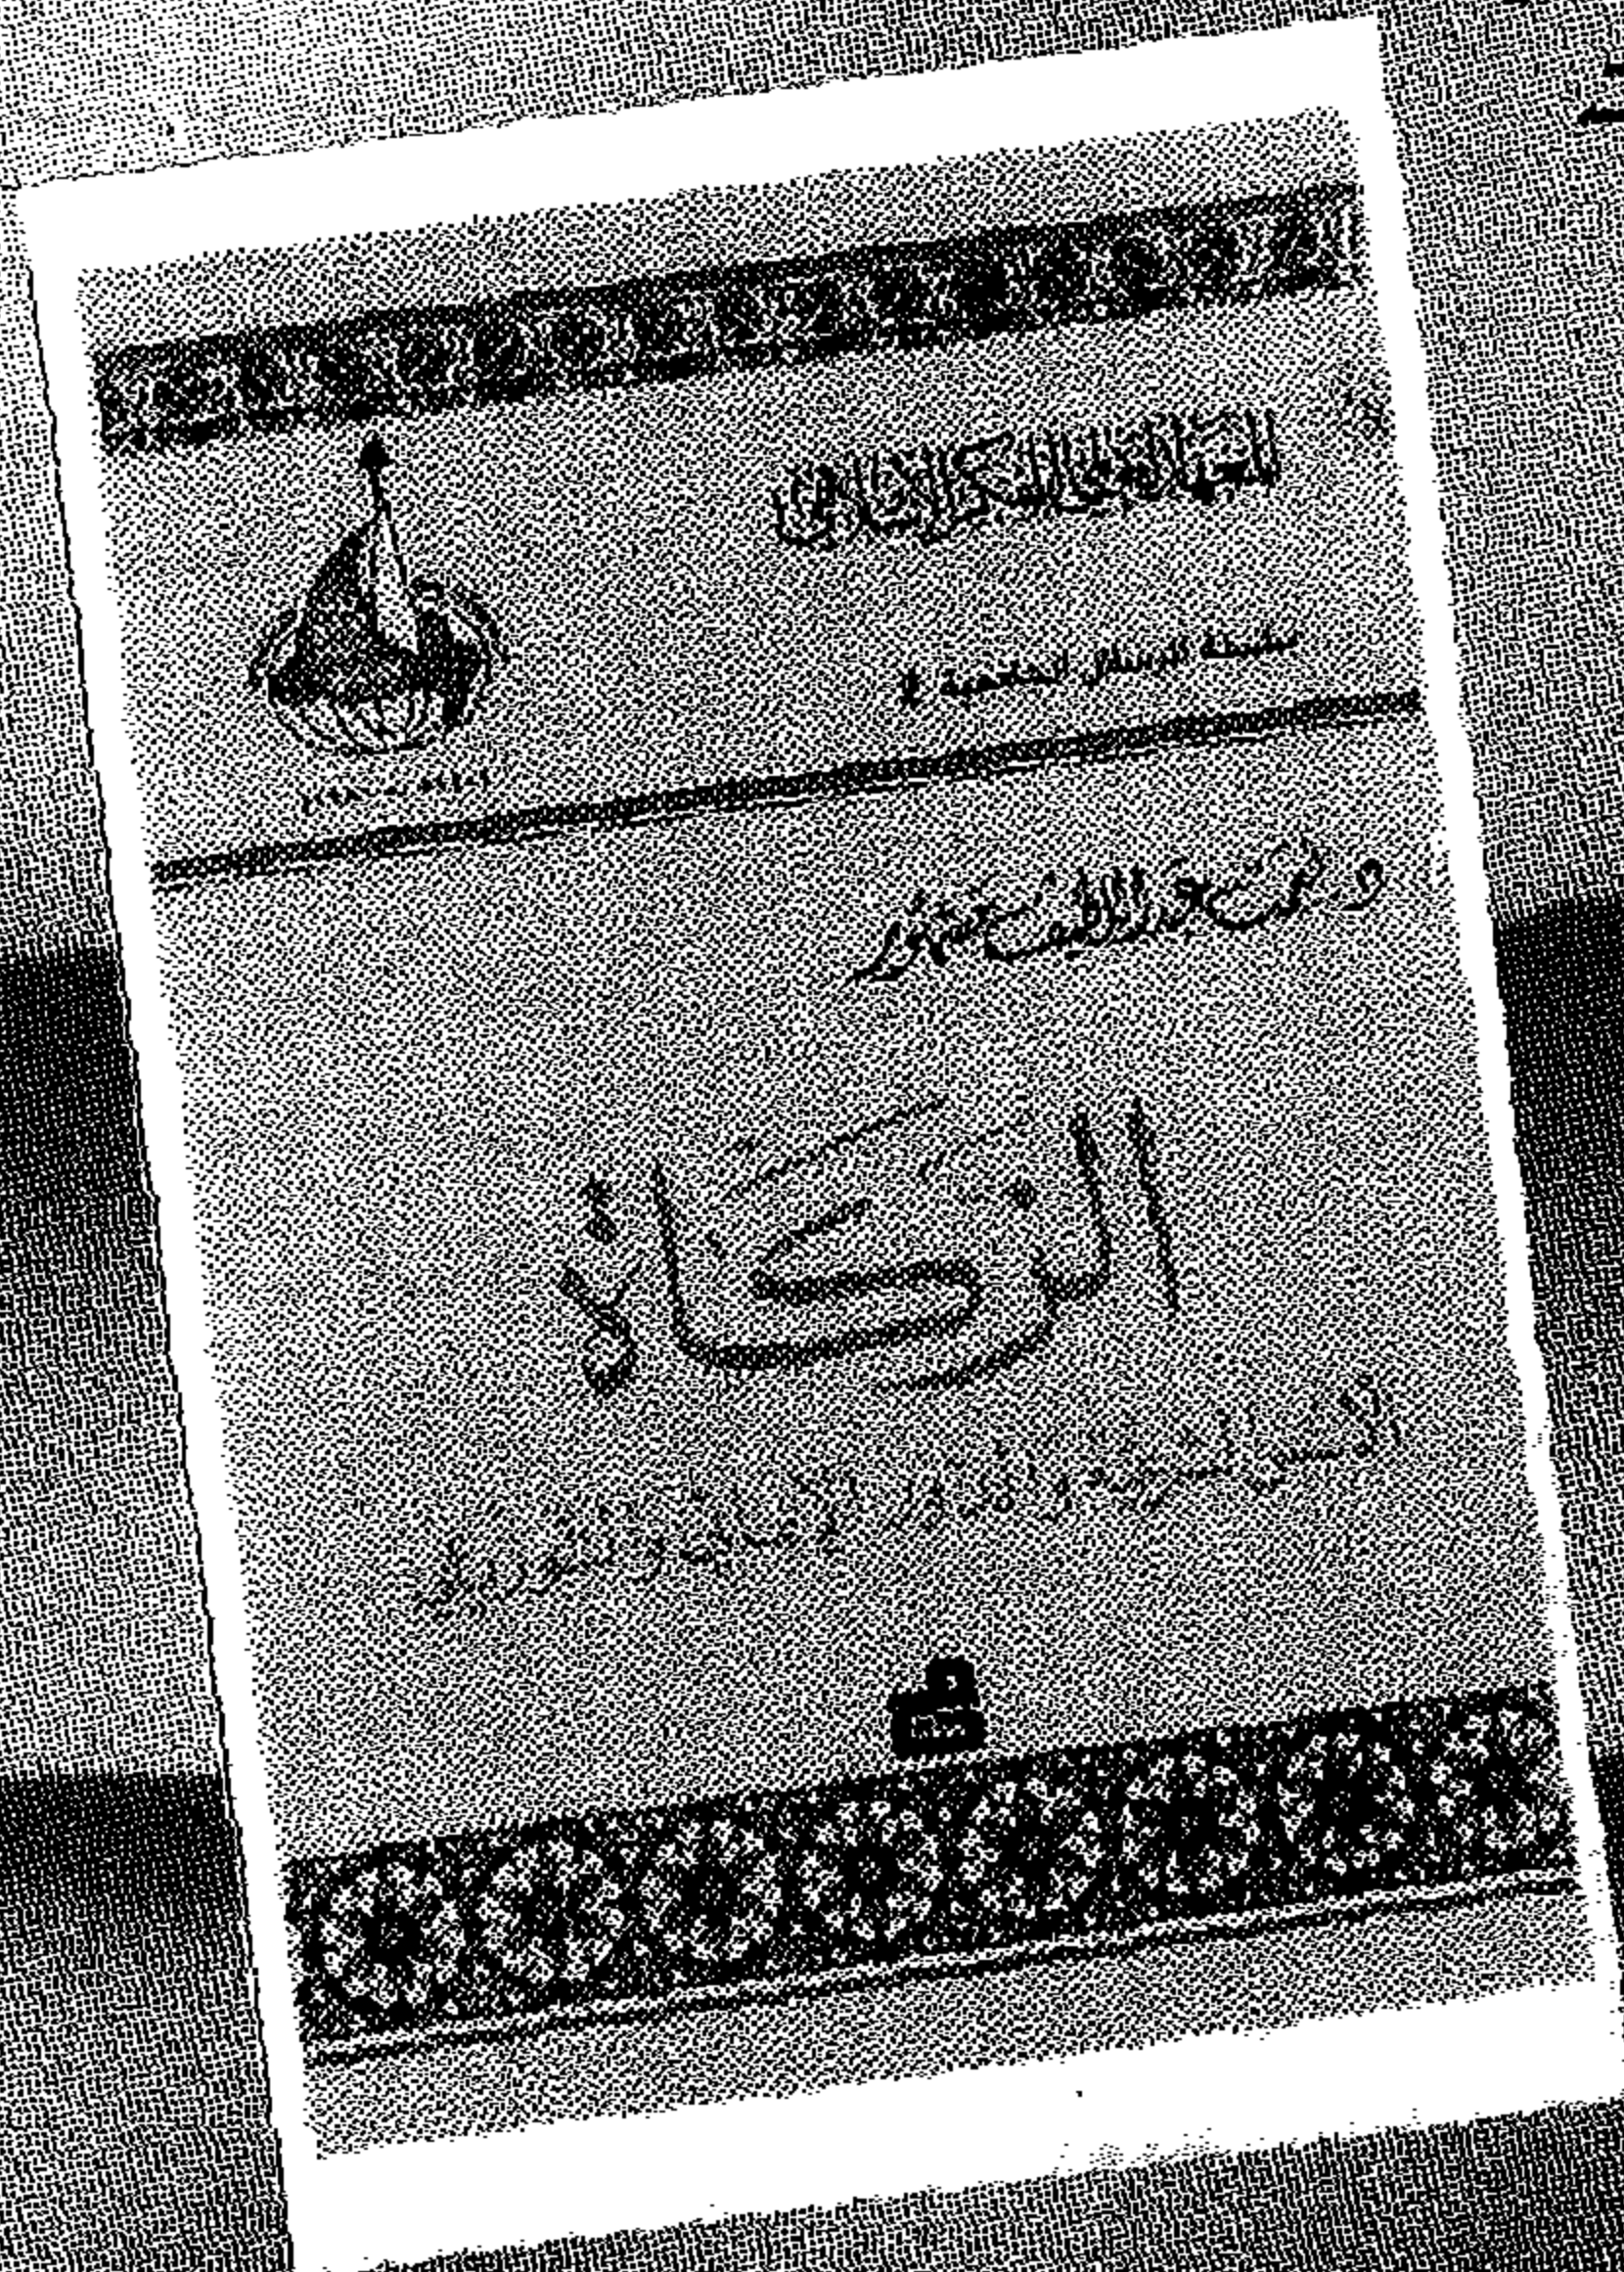 المعهد العالمي للفكر الإسلامي
سلسلة الرسائل الجامعية
د. نعمت عبد اللطيف مشهور
الزكاة
الأسس الشرعية والدور الإنمائي والتوزيعي